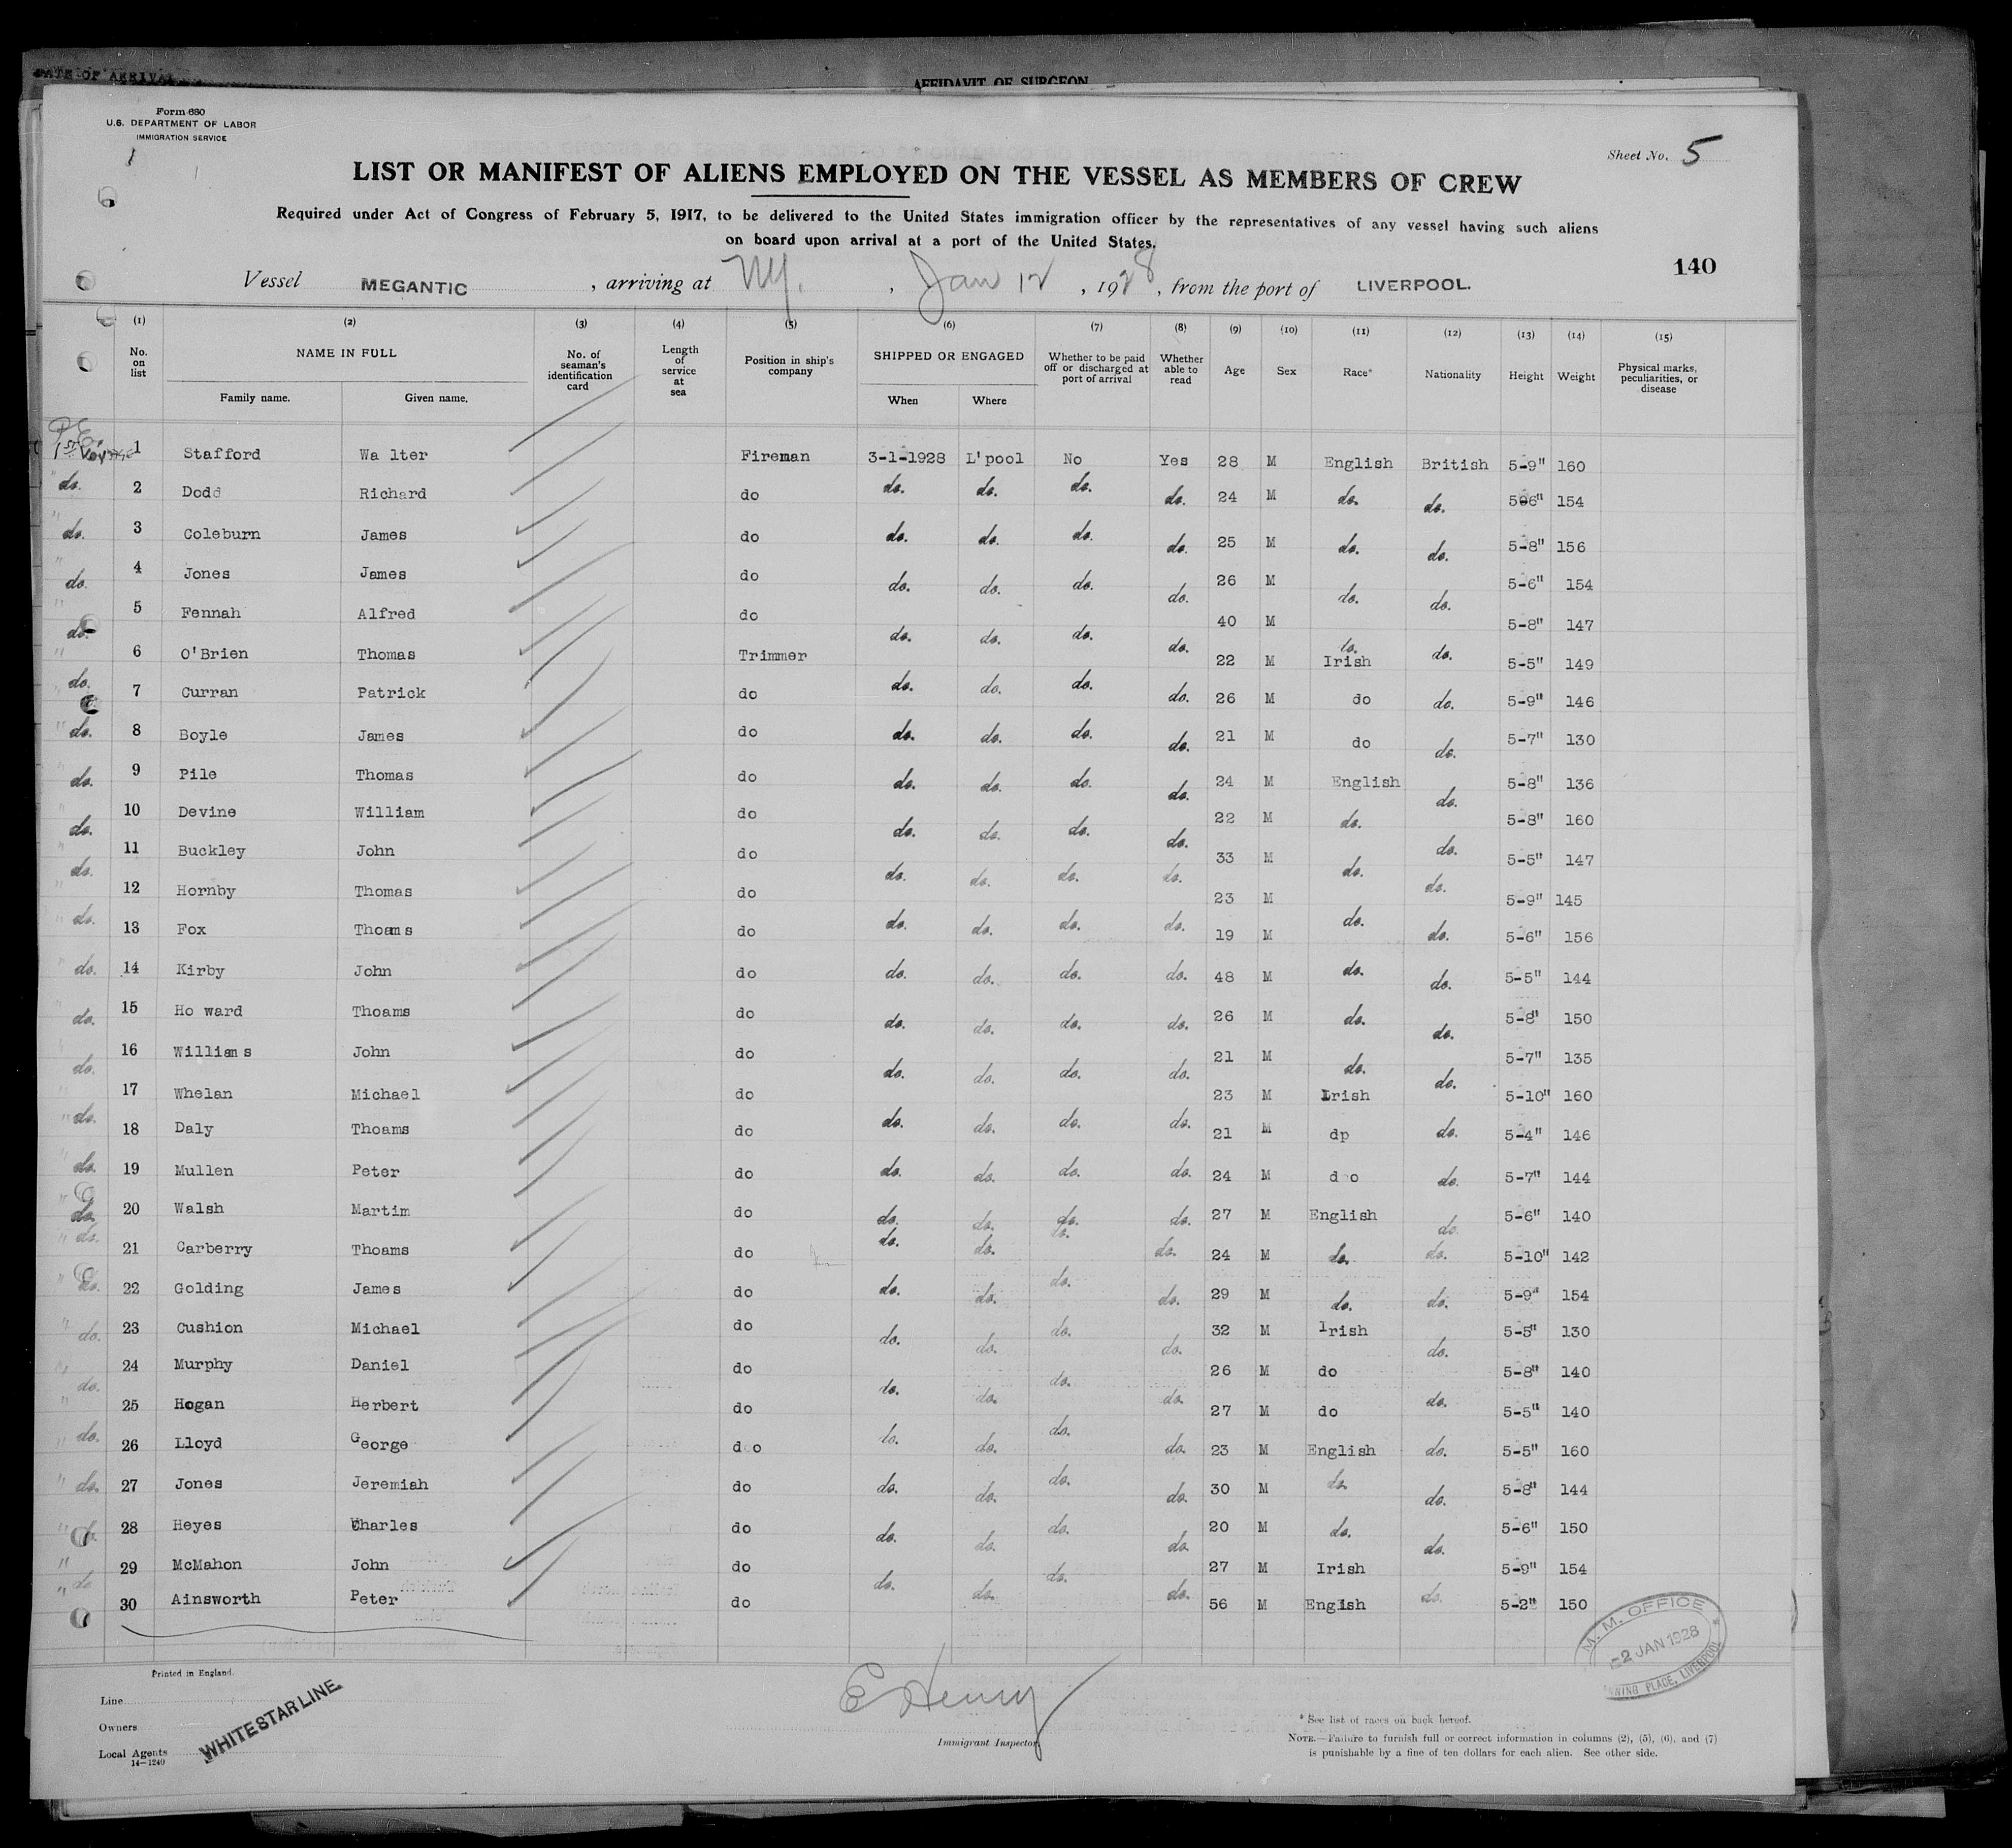 DATE OF ARRIVAL
AFFIDAVIT OF SURGEON
Form 680
U.S. DEPARTMENT OF LABOR
IMMIGRATION SERVICE
Sheet No. 5
LIST OR MANIFEST OF ALIENS EMPLOYED ON THE VESSEL AS MEMBERS OF CREW
Required under Act of Congress of February 5, 1917, to be delivered to the United States immigration officer by the representatives of any vessel having such aliens
on board upon arrival at a port of the United States.
140
Vessel MEGANTIC, arriving at NY., Jan 12, 1928, from the port of LIVERPOOL.
(1) (2) (3) (4) (5) (6) (7) (8) (9) (10) (11) (12) (13) (14) (15)
No. on list NAME IN FULL Family name. Given name. No. of seaman's identification card Length of service at sea Position in ship's company SHIPPED OR ENGAGED When Where Whether to be paid off or discharged at port of arrival Whether able to read Age Sex Race* Nationality Height Weight Physical marks, peculiarities, or disease
1st Voyage 1 Stafford Wa lter Fireman 3-1-1928 L'pool No Yes 28 M English British 5-9" 160
" do. 2 Dodd Richard do do. do. do. do. 24 M do. do. 506" 154
" do. 3 Coleburn James do do. do. do. do. 25 M do. do. 5-8" 156
" do. 4 Jones James do do. do. do. do. 26 M do. do. 5-6" 154
" do. 5 Fennah Alfred do do. do. do. do. 40 M do. do. 5-8" 147
" do. 6 O'Brien Thomas Trimmer do. do. do. do. 22 M Irish do. 5-5" 149
" do. 7 Curran Patrick do do. do. do. do. 26 M do do. 5-9" 146
" do. 8 Boyle James do do. do. do. do. 21 M do do. 5-7" 130
" do. 9 Pile Thomas do do. do. do. do. 24 M English do. 5-8" 136
" do. 10 Devine William do do. do. do. do. 22 M do. do. 5-8" 160
" do. 11 Buckley John do do. do. do. do. 33 M do. do. 5-5" 147
" do. 12 Hornby Thomas do do. do. do. do. 23 M do. do. 5-9" 145
" do. 13 Fox Thoams do do. do. do. do. 19 M do. do. 5-6" 156
" do. 14 Kirby John do do. do. do. do. 48 M do. do. 5-5" 144
" do. 15 Ho ward Thoams do do. do. do. do. 26 M do. do. 5-8" 150
" do. 16 Williams John do do. do. do. do. 21 M do. do. 5-7" 135
" do. 17 Whelan Michael do do. do. do. do. 23 M Irish do. 5-10" 160
" do. 18 Daly Thoams do do. do. do. do. 21 M dp do. 5-4" 146
" do. 19 Mullen Peter do do. do. do. do. 24 M d o do. 5-7" 144
" do. 20 Walsh Martim do do. do. do. do. 27 M English do. 5-6" 140
" do. 21 Carberry Thoams do do. do. do. do. 24 M do. do. 5-10" 142
" do. 22 Golding James do do. do. do. do. 29 M do. do. 5-9" 154
" do. 23 Cushion Michael do do. do. do. do. 32 M Irish do. 5-5" 130
" do. 24 Murphy Daniel do do. do. do. do. 26 M do do. 5-8" 140
" do. 25 Hogan Herbert do do. do. do. do. 27 M do do. 5-5" 140
" do. 26 Lloyd George d o do. do. do. do. 23 M English do. 5-5" 160
" do. 27 Jones Jeremiah do do. do. do. do. 30 M do. do. 5-8" 144
" do. 28 Heyes Charles do do. do. do. do. 20 M do. do. 5-6" 150
" do 29 McMahon John do do. do. do. do. 27 M Irish do. 5-9" 154
" 30 Ainsworth Peter do 56 M English 5-2" 150
M. M. OFFICE
-2 JAN 1928
NING PLACE, LIVERPOOL
Printed in England.
Line
Owners
Local Agents
14-1240
WHITE STAR LINE
E Henry
Immigrant Inspector.
* See list of races on back hereof.
NOTE.—Failure to furnish full or correct information in columns (2), (5), (6), and (7)
is punishable by a fine of ten dollars for each alien. See other side.